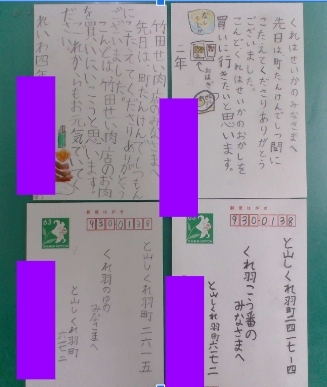 くれはせいかのみなさまへ
先日は町たんけんでしつ問に
こたえてくださりありがとう
ございました。
こんどくれはせいかのおかしを
買いに行きたいと思います。
二年
竹田せい肉店のみなさまへ
先日は、町たんけんでしつもん
にこたえてくれたありがとう
ございました。
こんどは竹田せい肉店のお肉
を買いにいこうと思います。
これからもお元気でいてく
ださい。
れいわ四年
郵便はがき
63
930-0138
と山しくれ羽町二四一七-四
くれ羽こう番の
みなさまへ
と山しくれ羽町六七二
郵便はがき
63
930-0138
と山しくれ羽町二六一五
くれ羽のゆの
みなさまへ
と山しくれ羽町